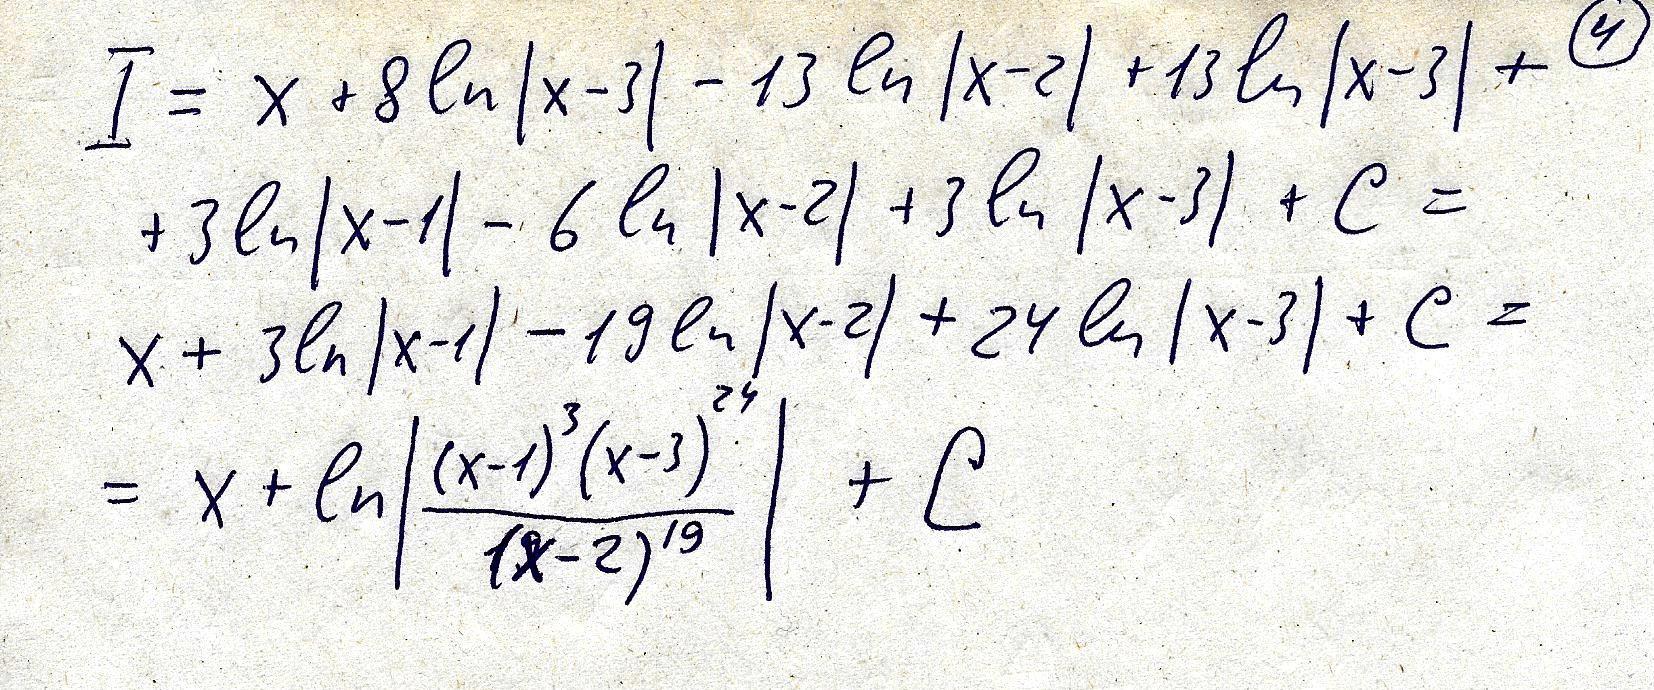 I = x + 8 ln|x-3| - 13 ln|x-2| + 13 ln|x-3| + (4)
+ 3 ln|x-1| - 6 ln|x-2| + 3 ln|x-3| + C =
x + 3 ln|x-1| - 19 ln|x-2| + 24 ln|x-3| + C =
= x + ln|((x-1)^3 (x-3)^24)/((x-2)^19)| + C